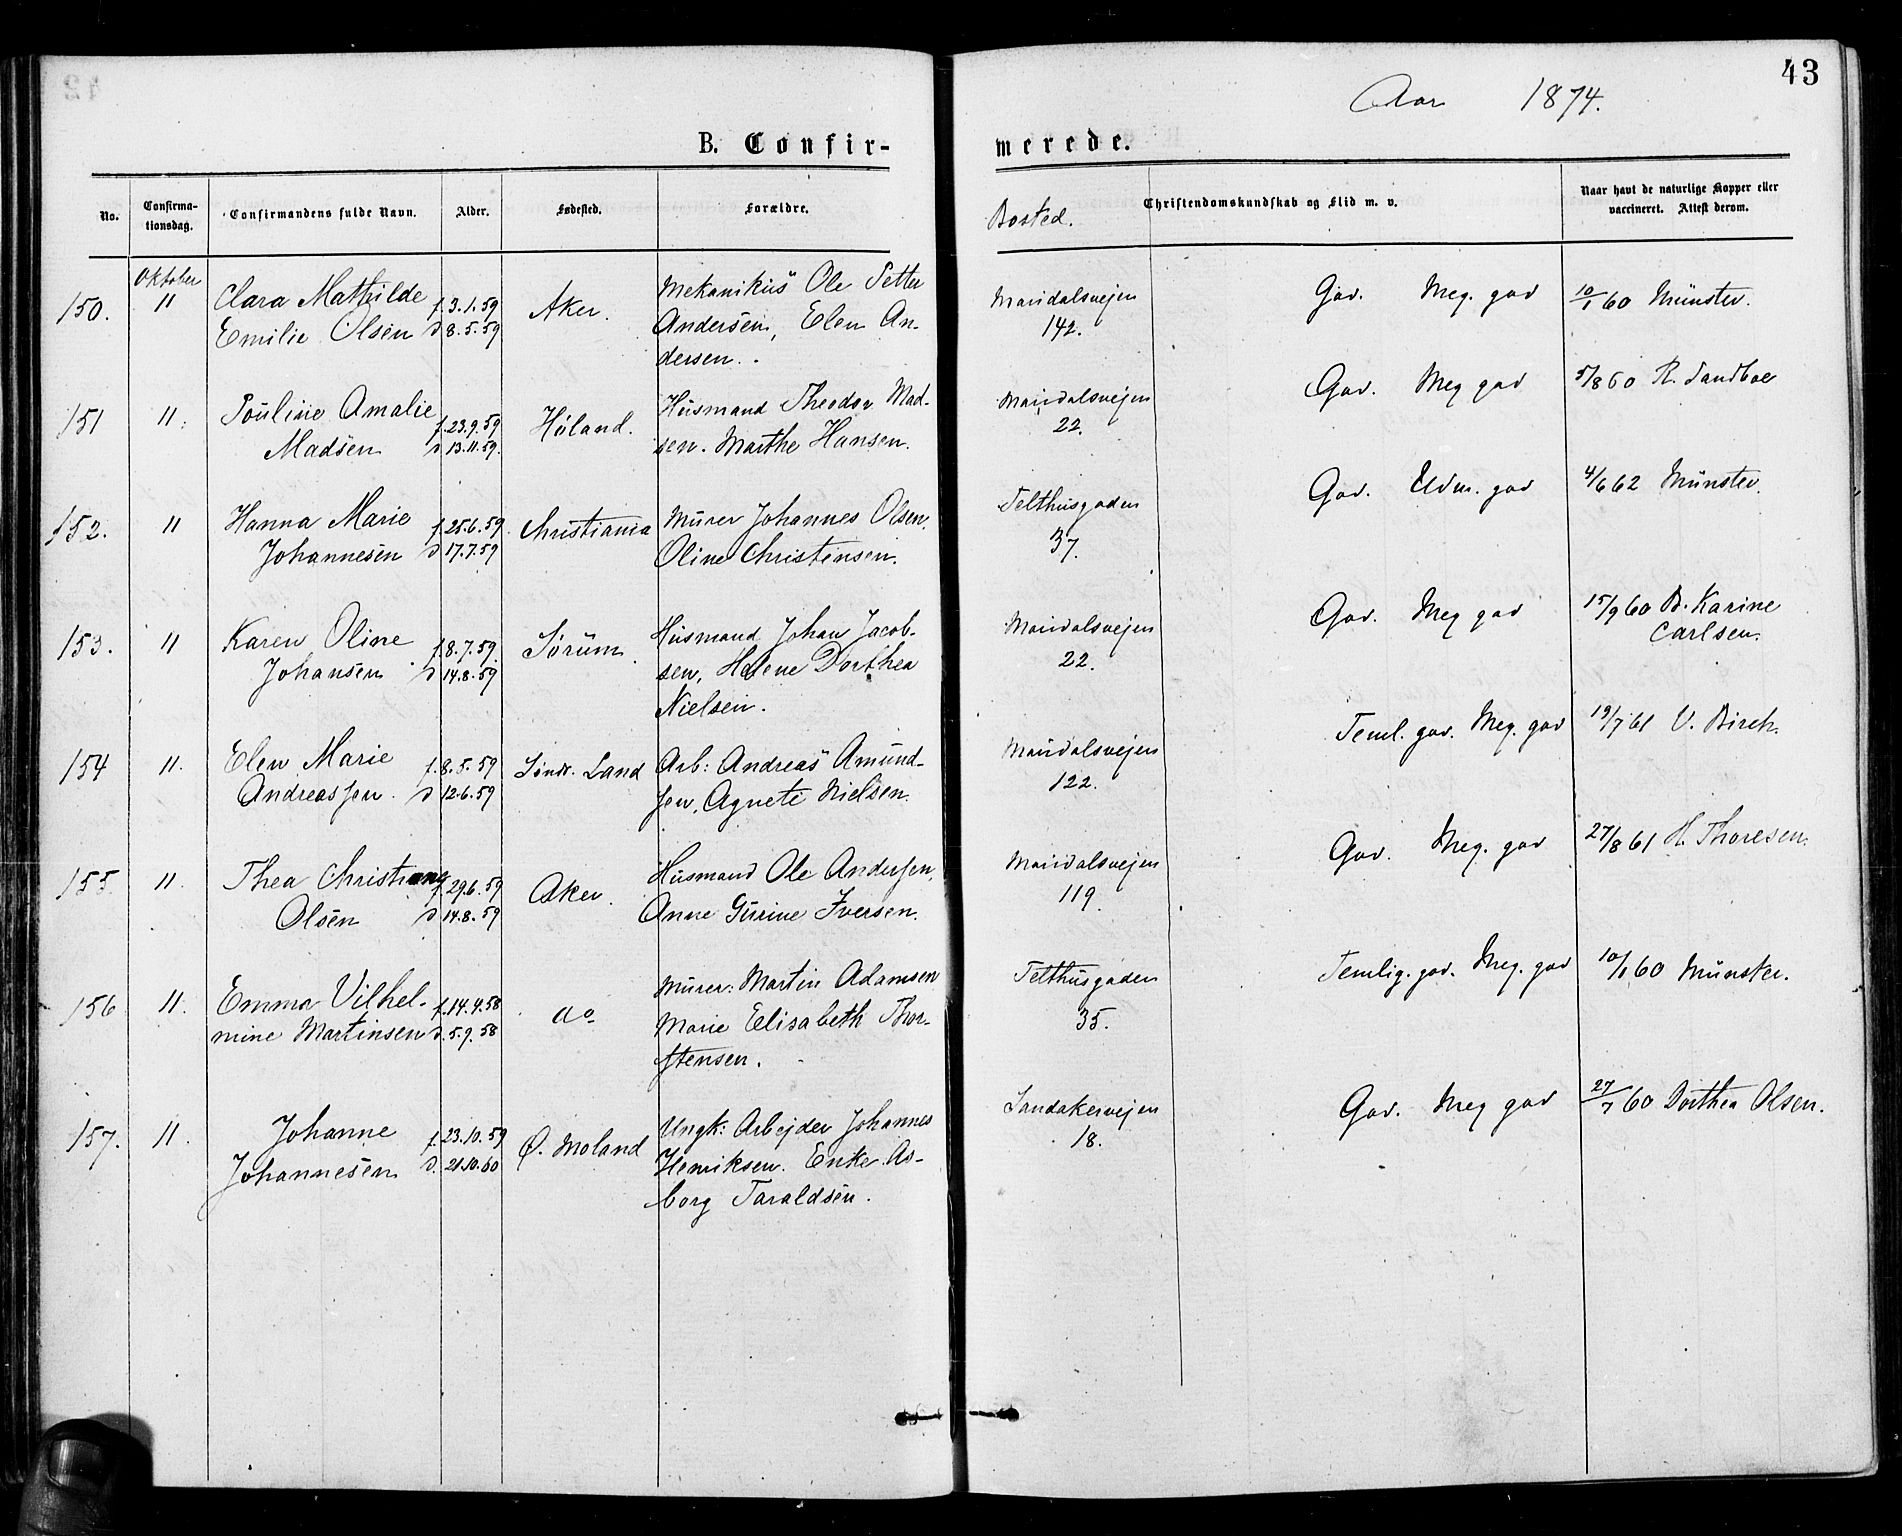 43
Aar 1874.
B. Confir-
merede.
No.
Confirma-
tionsdag.
Confirmandens fulde Navn.
Alder.
Fødested.
Forældre.
Bosted.
Christendomskundskab og Flid m. v.
Naar havt de naturlige Kopper eller
vaccineret. Attest derom.
Oktober
150.
11
Clara Mathilde
Emilie Olsen
f. 3.1.59
d 8.5.59
Aker.
Mekanikus Ole Petter
Andersen, Elen An-
dersen.
Maridalsvejen
142.
God. Meg. god
10/1 60 Münster.
151
11.
Pouline Amalie
Madsen
f. 23.9.59
d 13.11.59.
Høland.
Husmand Theodor Mad-
sen. Marthe Hansen.
Maridalsvejen
22.
God. Meg god
5/8 60 R. Sandboe
152.
11
Hanna Marie
Johannesen
f. 25.6.59
d 17.7.59
Christiania
Murer Johannes Olsen.
Oline Christensen.
Telthusgaden
37.
God. Udm. god
4/6 62 Münster.
153.
11
Karen Oline
Johansen
f. 8.7.59
d 14.8.59
Sørum
Husmand Johan Jacob-
sen, Helene Dorthea
Nielsen.
Maridalsvejen
22.
God. Meg god
15/9 60 B. Karine
Carlsen.
154
11.
Elen Marie
Andreassen.
f. 8.5.59
d 12.6.59
Søndr. Land
Arb: Andreas Amund-
sen, Agnete Nielsen.
Maridalsvejen
122.
Teml. god. Meg. god
19/7 61 V. Birch.
155.
11.
Thea Christiane
Olsen
f. 29.6.59
d 14.8.59
Aker.
Husmand Ole Andersen,
Anne Gurine Iversen.
Maridalsvejen
119.
God. Meg. god
27/8 61 H. Thoresen.
156
11.
Emma Vilhel-
mine Martinsen
f. 14.4.58
d. 5.9.58
do
Murer: Martin Adamsen
Marie Elisabeth Thor-
stensen.
Telthusgaden
35.
Temlig. god. Meg. god
10/1 60 Münster.
157.
11.
Johanne
Johannesen
f. 23.10.59
d. 21.10.60
Ø. Moland
Ungk: Arbejder Johannes
Henriksen. Enke As-
borg Taraldsen.
Sandakervejen
18.
God. Meg god
27/7 60 Dorthea Olsen.